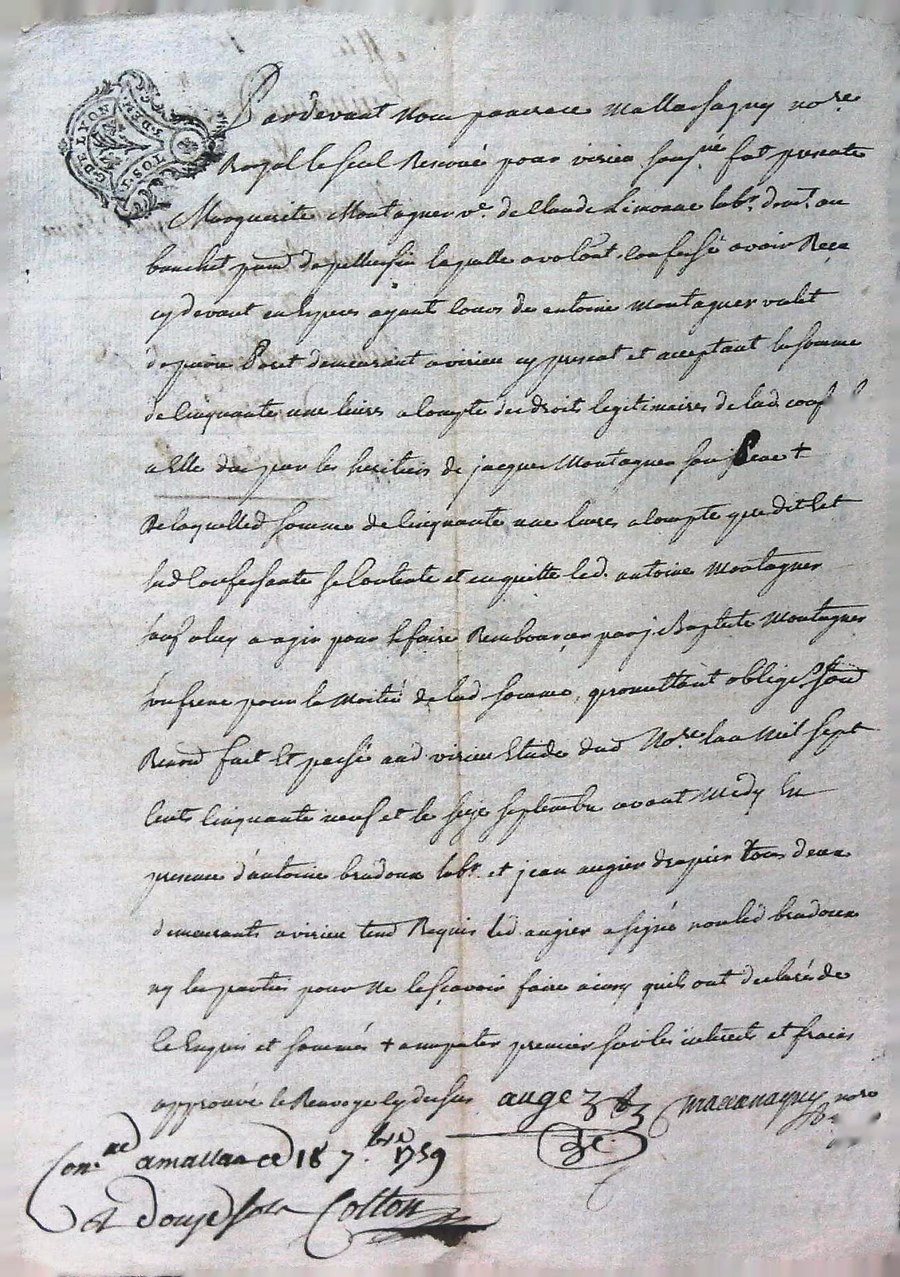 G. DE LYON
Par devant Nous pancrace Mallassagny no.re
Royal le seul Reservé pour virieu sousné fut presente
Marguerite Montagner ve. de Claude Limonne labr. demt. au
banchet parr de pellussin laquelle a volont. confessé avoir Reçu
cy devant en Especes ayant cours de antoine Montagner valet
demeurant a virieu cy present et acceptant la somme
de Cinquante une livres a Compte des droits legitimaires de lad. conf
a Elle dus par les heritiers de jacques Montagner son pere +
De laquelled somme de Cinquante une livres a Compte que dit Est
lad Confessante se Contente et en quitte led. antoine Montagner
sauf a luy a agir pour se faire Rembourcer par j Baptiste Montagner
son frere pour la Moitié de lad somme, promettant oblige
Renond fait Et passé aud virieu Etude dud No.re lan Mil sept
Cents Cinquante neuf et le seze septembre avant Midy En
presence d'antoine bradoux labr. et jean augier drapier tous deux
demeurants a virieu Requis led. augier a signé non led bradoux
ny les parties pour Ne le sçavoir faire ainsy quils ont declaré de
Ce Enquis et sommés + a imputer premier sur les interets et frais
approuvé le Renvoye cy dessus auge Mallassagny nore
Con.né a mallaval ce 18 7.bre 1759
R douze sols Cotton